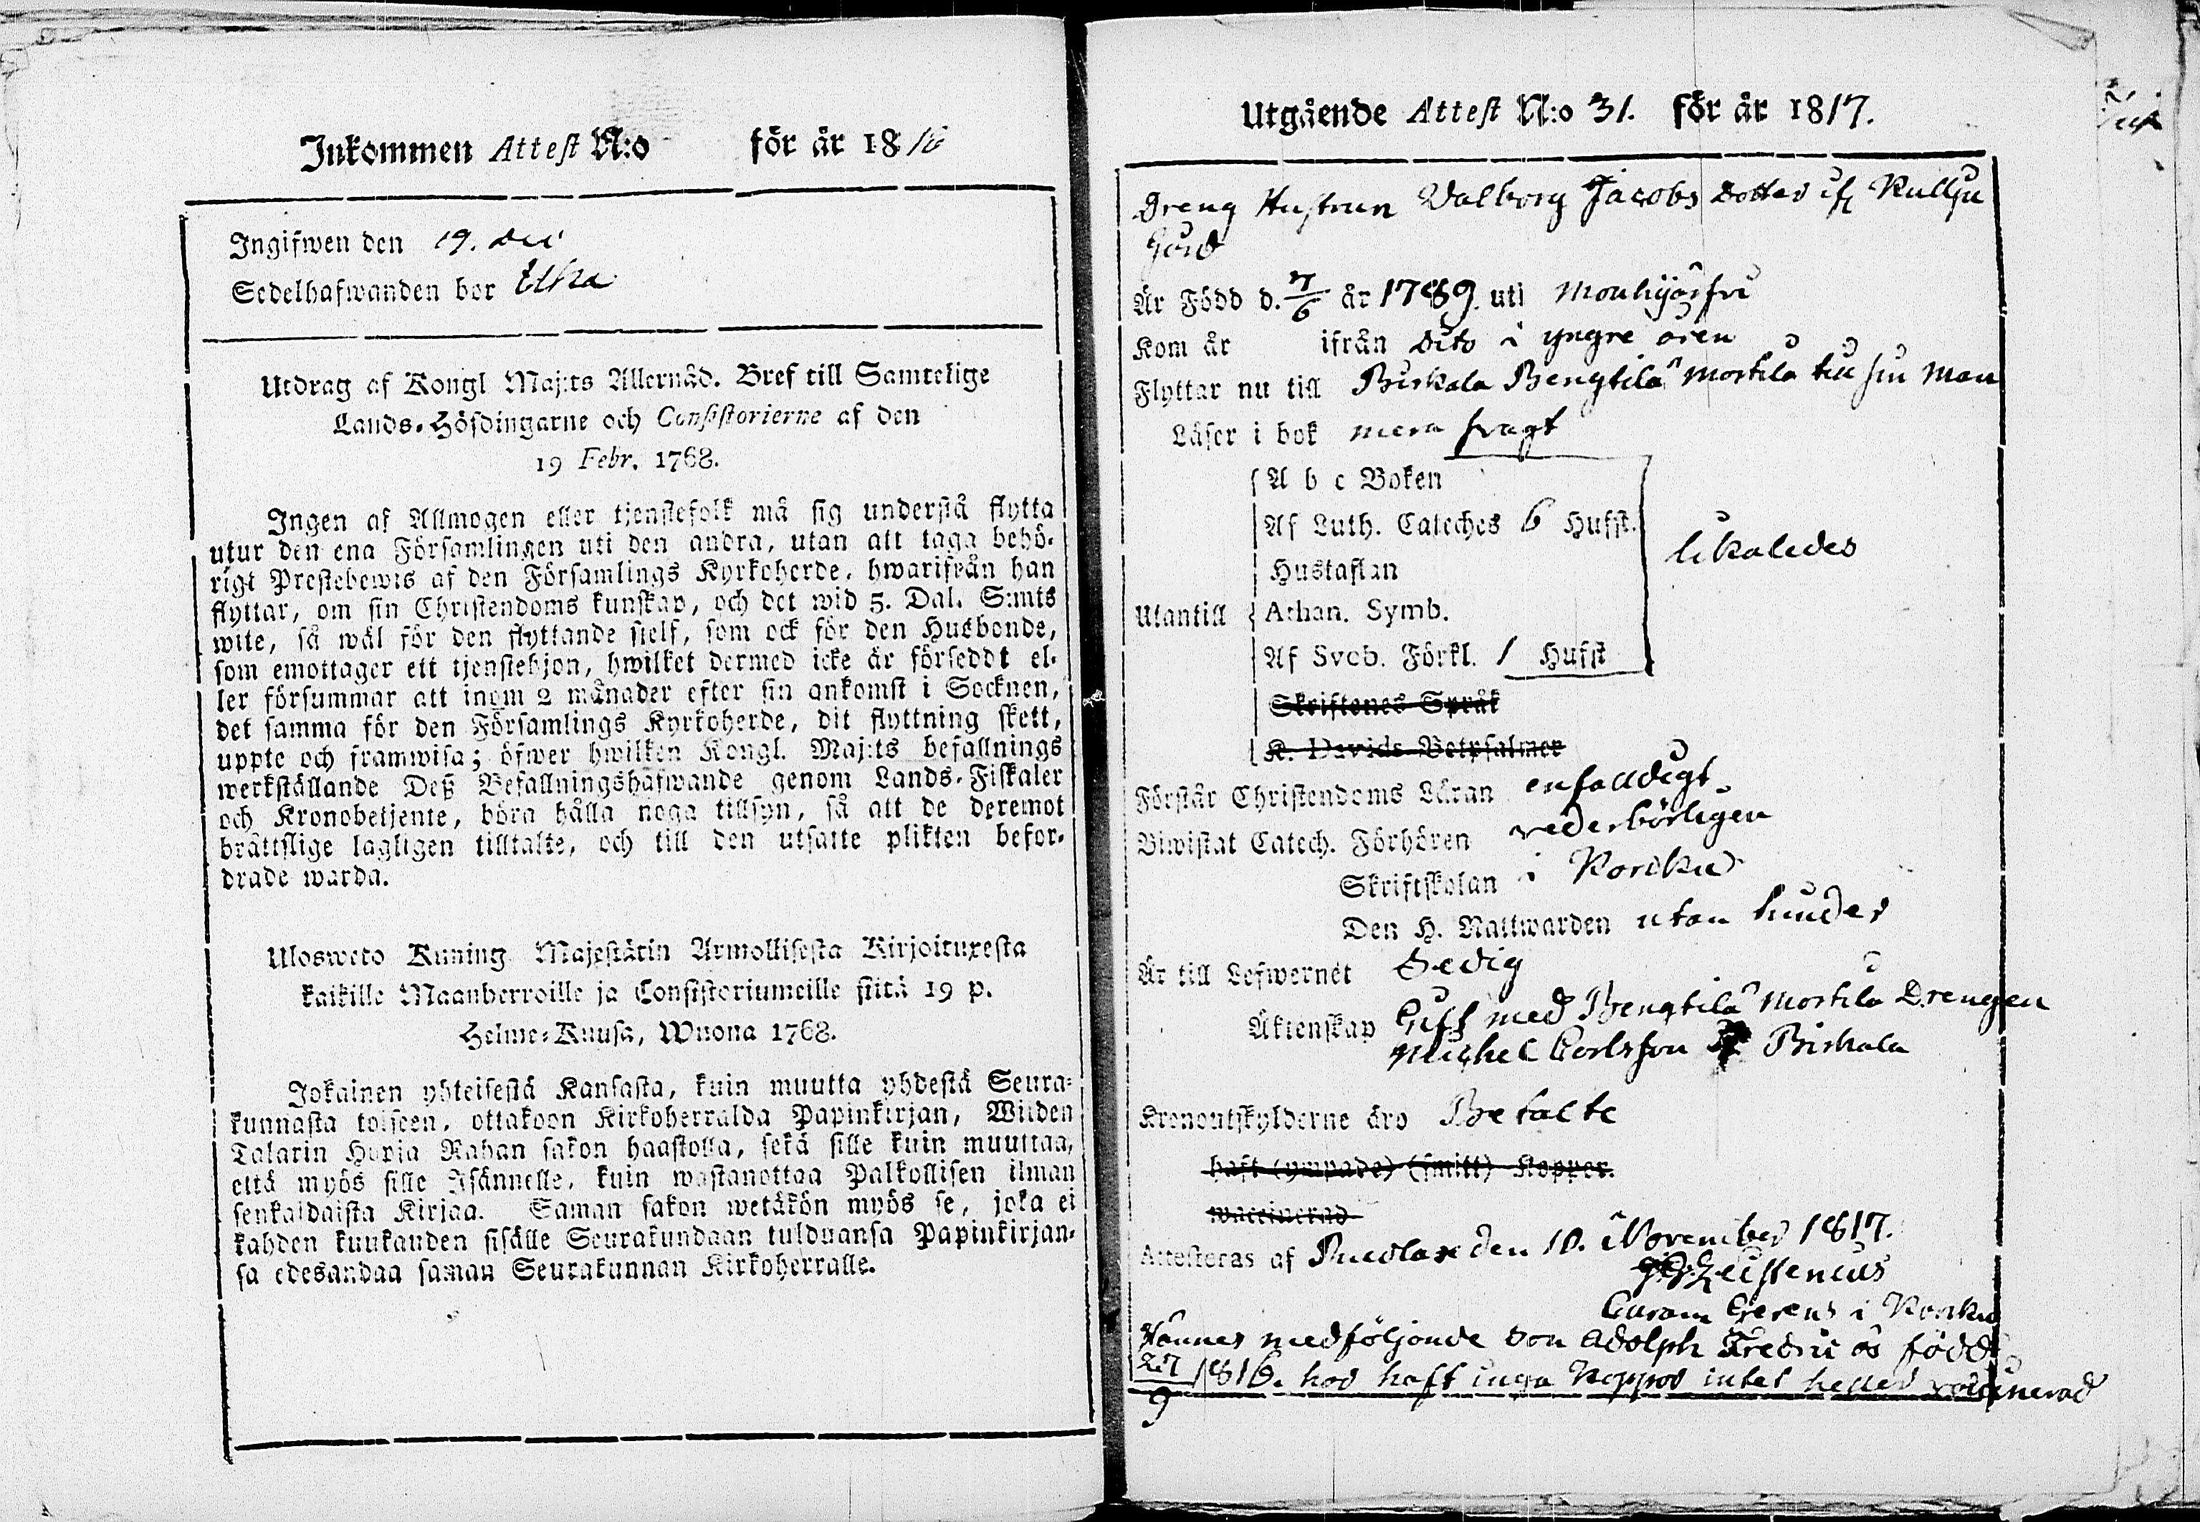 Inkommen Attest N:o för år 18
Ingifwen den 19. Dec
Sedelhafwanden bor
Utdrag af Kongl Maj:ts Allernåd. Bref till Samtelige
Lands-Höfdingarne och Consistorierne af den
19 Febr. 1768.
Ingen af Allmogen eller tjenstefolk må sig understå flytta
utur den ena Församlingen uti den andra, utan att taga behö-
rigt Prestebewis af den Församlings Kyrkoherde, hwarifrån han
flyttar, om sin Christendoms kunskap, och det wid 5. Dal. S:mts
wite, så wäl för den flyttande sielf, som ock för den Husbonde,
som emottager ett tjenstehjon, hwilket dermed icke är förseddt el-
ler försummar att inom 2 månader efter sin ankomst i Socknen,
det samma för den Församlings Kyrkoherde, dit flyttning skett,
uppte och framwisa; öfwer hwilken Kongl. Maj:ts befallnings
werkställande Deß Befallningshafwande genom Lands-Fiskaler
och Kronobetjente, böra hålla noga tillsyn, så att de deremot
bråttslige lagligen tilltalte, och till den utsatte plikten befor-
drade warda.
Ulosweto Kuning. Majestätin Armollisesta Kirjoituxesta
kaikille Maanherroille ja Consistoriumeille siitä 19 p.
Helme-Kuusa, Wuona 1768.
Jokainen yhteisestä Kansasta, kuin muutta yhdestä Seura-
kunnasta toiseen, ottakoon Kirkoherralda Papinkirjan, Wiiden
Talarin Hopia Rahan sakon haastolla, sekä sille kuin muuttaa,
että myös sille Isännelle, kuin wastanottaa Palkollisen ilman
senkaldaista Kirjaa. Saman sakon wetäkön myös se, joka ei
kahden kuukauden sisälle Seurakundaan tulduansa Papinkirjan-
sa edesandaa saman Seurakunnan Kirkoherralle.
Utgående Attest N:o 31. för år 1817.
Dreng Hustrun Walborg Jacobs Dotter if
Är Född d. 7/6 år 1789. uti Mouhijärfvi
Kom år ifrån dito i yngre åren
Flyttar nu till Birkala Bengtilä Mortila till sin Man
Läser i bok mera svagt
A b c Boken
Af Luth. Cateches 6 Hufst.
Hustaflan likaledes
Utantill Athan. Symb.
Af Sveb. Förkl. 1 Hufst
Skriftenes Språk
K. Davids Botpsalmer
Förstår Christendoms Läran enfalldigt
Biwistat Catech. Förhören vederbörligen
Skriftskolan i Karcku
Den H. Nattwarden utan hinder
Är till Lefwernet Sedig
Äktenskap Gift med Bengtilä Mortila Drengen
Michel Carlsson Birkala
Kronoutskylderne äro Betalte
haft (ympade) (smitt) Koppor.
waccinerad
Attesteras af den 10. November 1817.
i Karcku
Hännes medföljande son Adolph Fredric är född
27/9 1816. har haft inga Koppor intet heller vaccinerad